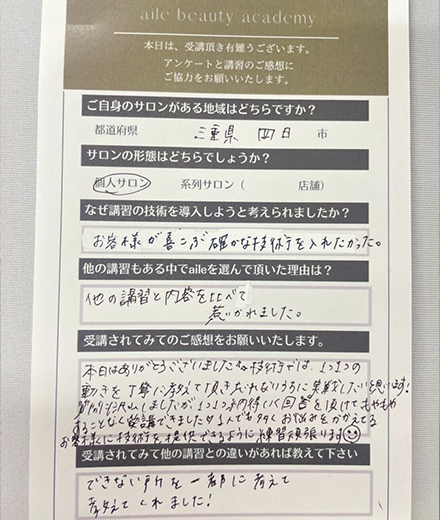 aile beauty academy
本日は、受講頂き有難うございます。
アンケートと講習のご感想に
ご協力をお願いいたします。
ご自身のサロンがある地域はどちらですか？
都道府県 三重県 四日 市
サロンの形態はどちらでしょうか？
個人サロン 系列サロン（ 店舗）
なぜ講習の技術を導入しようと考えられましたか？
お客様が喜こぶ確かな技術を入れたかった。
他の講習もある中でaileを選んで頂いた理由は？
他の講習と内容を比べて
惹かれました。
受講されてみてのご感想をお願いいたします。
本日はありがとうございました 技術では、1つ1つの
動きを丁寧に教えて頂き忘れないうちに実践したいと思います!
質問沢山しましたが1つ1つ納得いく回答を頂けてもやもや
することなく受講できました 1人でも多くお悩みをかかえてる
お客様に技術を提供できるように練習頑張ります
受講されてみて他の講習との違いがあれば教えて下さい
できない所を一緒に考えて
教えてくれました!